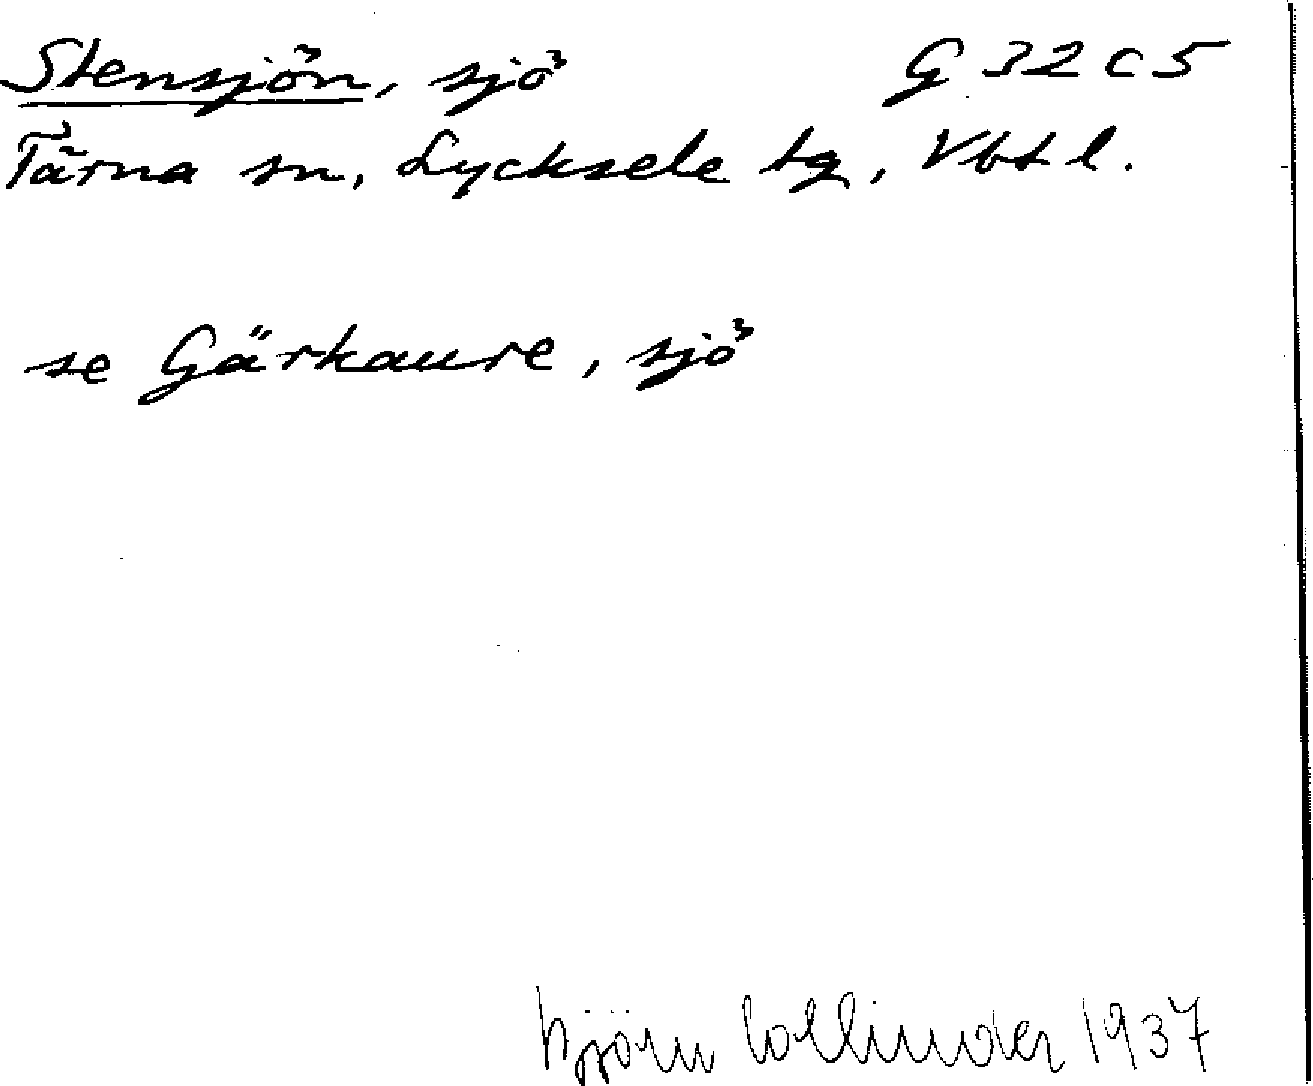 Stensjön, sjö G 32 C 5
Tärna sn, Lycksele tg, Vbt l.
se Gärkaure, sjö
Björn Collinder 1937